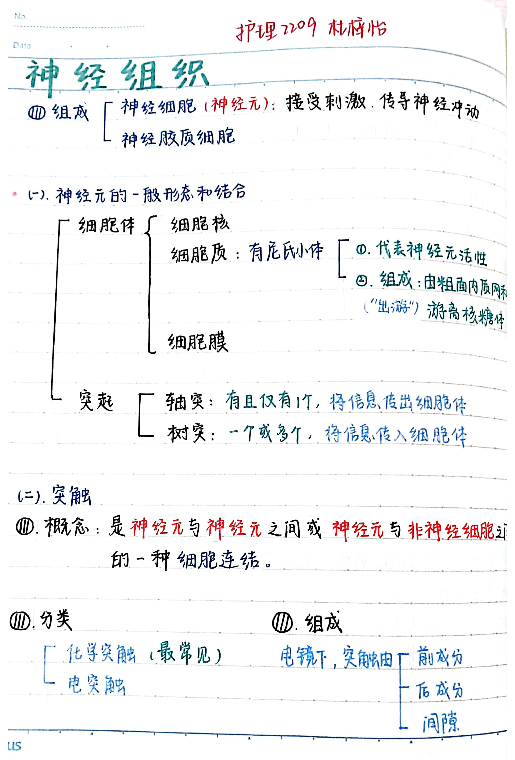 No.
Date
护理2209 杜梓怡
神经组织
Ⅲ 组成
神经细胞(神经元):接受刺激.传导神经冲动
神经胶质细胞
(一).神经元的一般形态和结合
细胞体
细胞核
细胞质:有尼氏小体
①.代表神经元活性
②.组成:由粗面内质网和
("出游") 游离核糖体
细胞膜
突起
轴突:有且仅有1个,将信息传出细胞体
树突:一个或多个,将信息传入细胞体
(二).突触
Ⅲ.概念:是神经元与神经元之间或 神经元与非神经细胞之间
的一种细胞连结。
Ⅲ.分类
化学突触(最常见)
电突触
Ⅲ.组成
电镜下,突触由
前成分
后成分
间隙